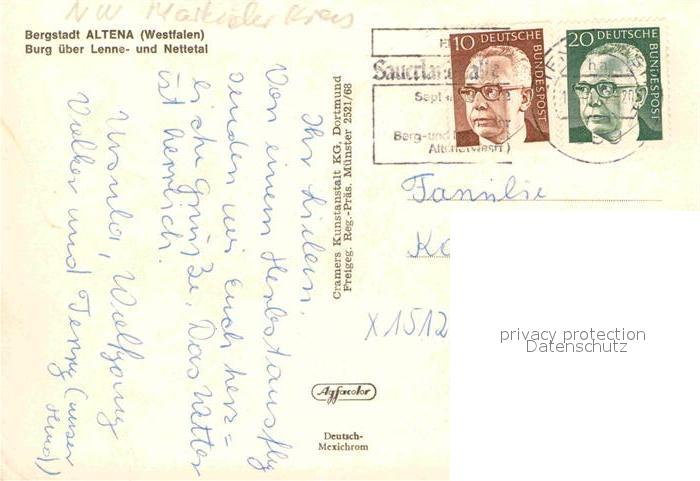 NW Märkischer Kreis
Bergstadt ALTENA (Westfalen)
Burg über Lenne- und Nettetal
Ihr Lieben,
Von einem Herbstausflug
senden wir euch herz=
liche Grüße. Das Wetter
ist herrlich.
Ursula, Wolfgang
Volker und Jenny (unser
Hund)
Cramers Kunstanstalt KG, Dortmund
Freigeg. Reg.-Präs. Münster 2521/68
Agfacolor
Deutsch-
Mexichrom
Sauerland
Sept
Berg-und
Altena (Westf)
10 DEUTSCHE
BUNDESPOST
20 DEUTSCHE
BUNDESPOST
Familie
X 1512
privacy protection
Datenschutz